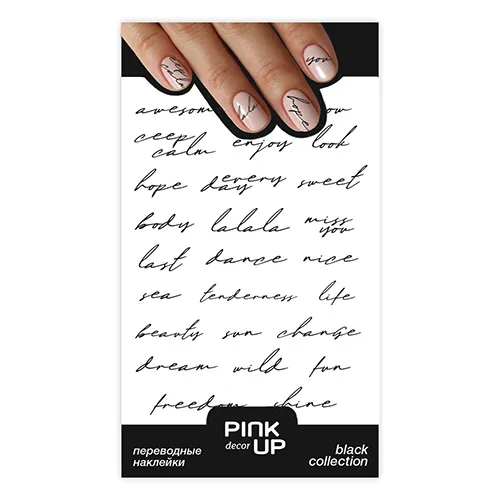 keep
calm
hope
you
awesom ow
keep
calm enjoy look
hope every
day sweet
body lalala miss
you
last dance nice
sea tenderness life
beauty sun change
dream wild fun
freedom shine
PINK
decor UP
переводные
наклейки
black
collection